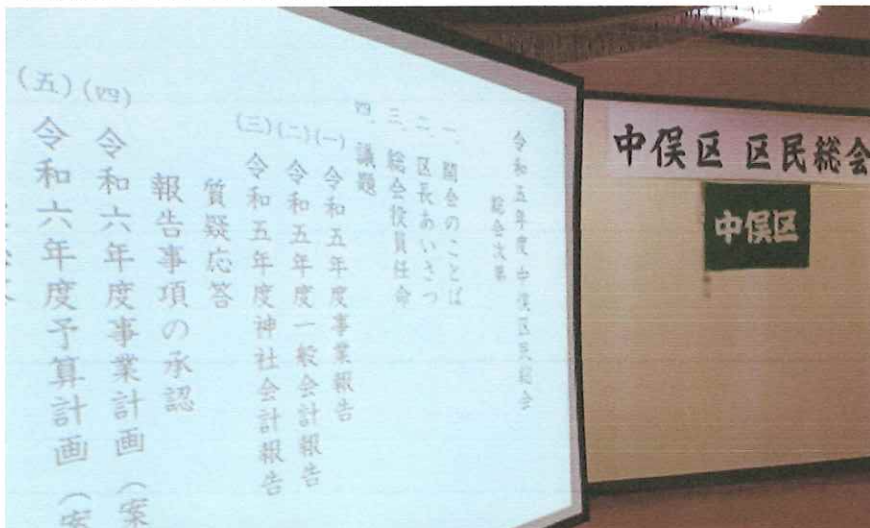 令和五年度中俣区民総会
総会次第
一、開会のことば
二、区長あいさつ
三、総会役員任命
四、議題
(一)令和五年度事業報告
(二)令和五年度一般会計報告
(三)令和五年度神社会計報告
質疑応答
報告事項の承認
(四)令和六年度事業計画(案
(五)令和六年度予算計画(案
中俣区 区民総会
中俣区